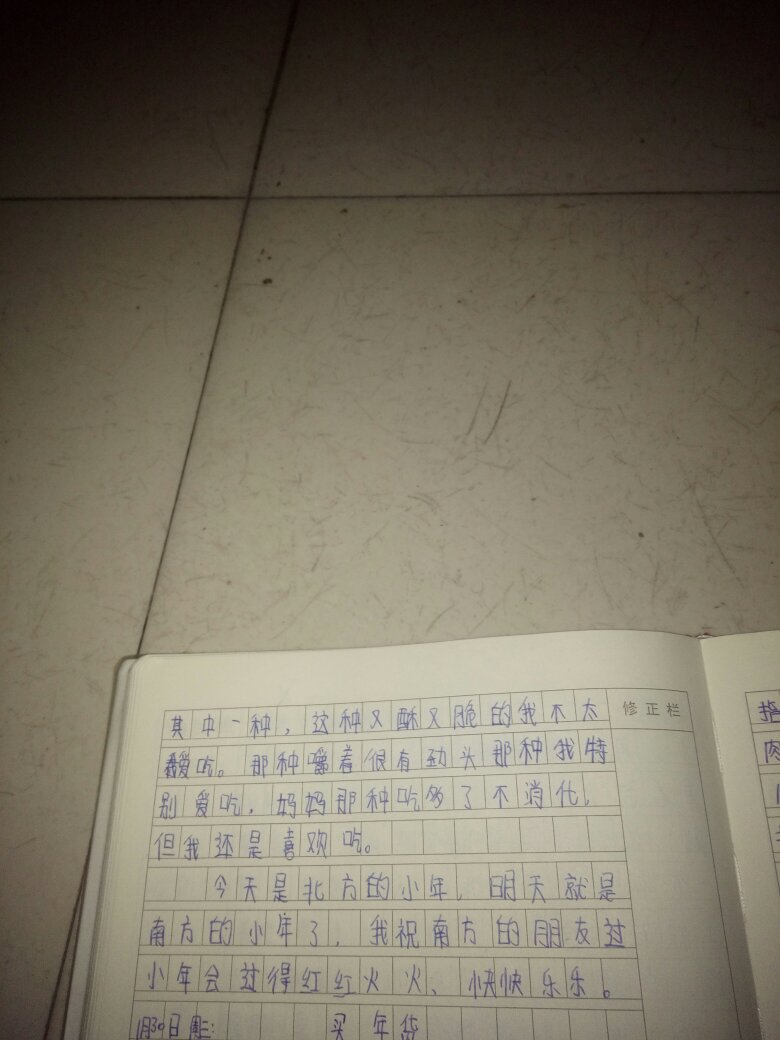 其中一种，这种又酥又脆的我不太
修正栏
爱吃。那种嚼着很有劲头那种我特
别爱吃，妈妈那种吃多了不消化，
但我还是喜欢吃。
今天是北方的小年，明天就是
南方的小年了，我祝南方的朋友过
小年会过得红红火火、快快乐乐。
1月30日 周三： 买年货
肉